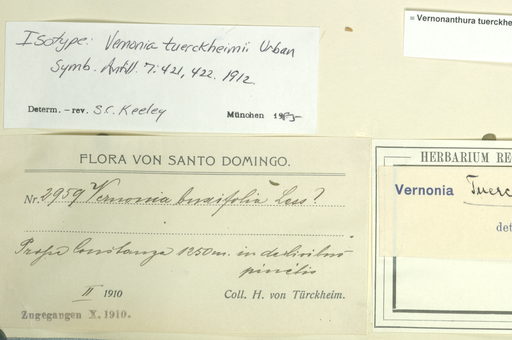 Isotype: Vernonia tuerckheimii Urban
Symb. Antill. 7: 421, 422. 1912
Determ. – rev. S.C. Keeley
München
= Vernonanthura tuerckhe
FLORA VON SANTO DOMINGO.
Nr. 2959 Vernonia buxifolia Less?
Prope Constanza 1250 m. in declivibus
pinetis
II 1910
Coll. H. von Türckheim.
Zugegangen X. 1910.
HERBARIUM RE
Vernonia Tuerc
det